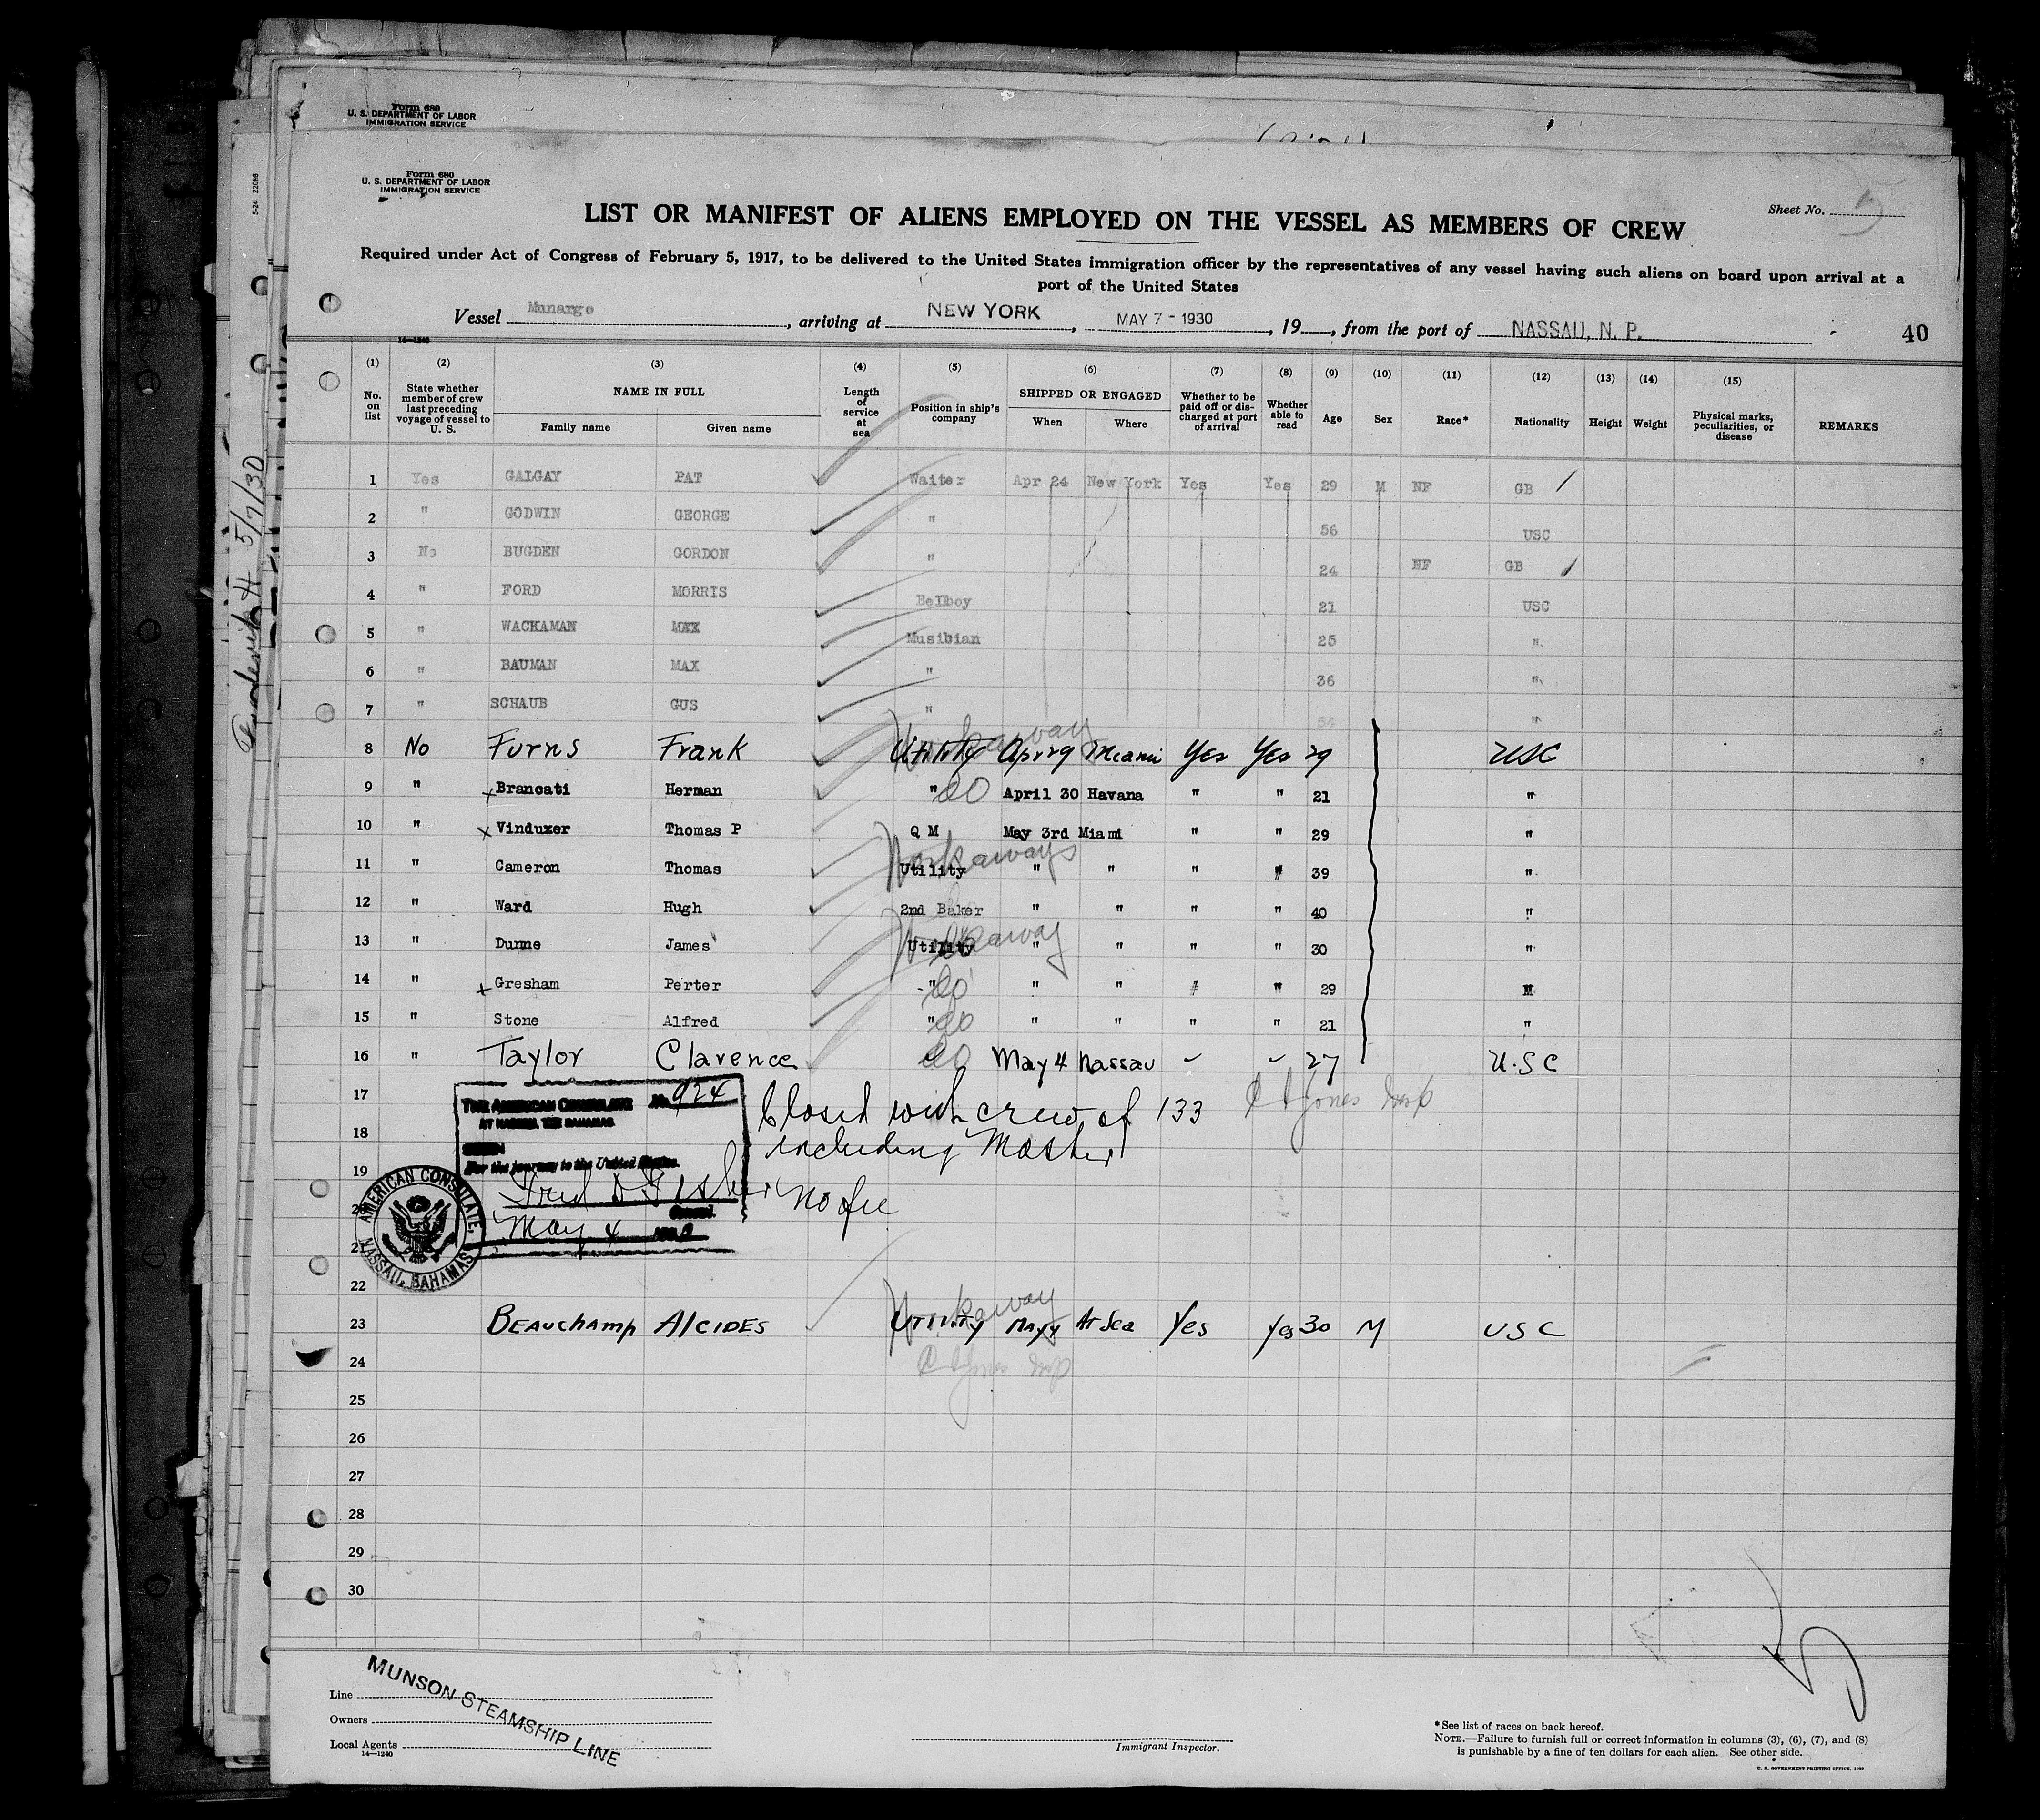 Form 680
U. S. DEPARTMENT OF LABOR
IMMIGRATION SERVICE
Form 680
U. S. DEPARTMENT OF LABOR
IMMIGRATION SERVICE
5-24 22086
5/7/30
Sheet No. 5
LIST OR MANIFEST OF ALIENS EMPLOYED ON THE VESSEL AS MEMBERS OF CREW
Required under Act of Congress of February 5, 1917, to be delivered to the United States immigration officer by the representatives of any vessel having such aliens on board upon arrival at a
port of the United States
Vessel Munargo, arriving at NEW YORK, MAY 7 - 1930, 19, from the port of NASSAU, N. P. 40
14—1240
(1) (2) (3) (4) (5) (6) (7) (8) (9) (10) (11) (12) (13) (14) (15)
No. on list State whether member of crew last preceding voyage of vessel to U. S. NAME IN FULL Family name Given name Length of service at sea Position in ship's company SHIPPED OR ENGAGED When Where Whether to be paid off or discharged at port of arrival Whether able to read Age Sex Race* Nationality Height Weight Physical marks, peculiarities, or disease REMARKS
1 Yes GALGAY PAT Waiter Apr 24 New York Yes Yes 29 M NF GB
2 " GODWIN GEORGE " 56 USC
3 No BUGDEN GORDON " 24 NF GB
4 " FORD MORRIS Bellboy 21 USC
5 " WACKAMAN MEX Musibian 25 "
6 " BAUMAN MAX " 36 "
7 " SCHAUB GUS " 54 "
8 No Furns Frank Utility Workaway Apr 29 Miami Yes Yes 29 USC
9 " x Brancati Herman " do April 30 Havana " " 21 "
10 " x Vinduxer Thomas P Q M May 3rd Miami " " 29 "
11 " Cameron Thomas Utility Workaways " " " " 39 "
12 " Ward Hugh 2nd Baker " " " " 40 "
13 " Dunne James Utility Workaway " " " " 30 "
14 " x Gresham Perter " do " " " " 29 "
15 " Stone Alfred " do " " " " 21 "
16 " Taylor Clarence do May 4 Nassau " " 27 U.S C
17 THE AMERICAN CONSULATE No. 924 Closed with crew of 133 Jones
AT NASSAU THE BAHAMAS
18 including Master
SEEN
19 For the journey to the United States.
20 Fred D Fisher No fee
Consul.
21 May 4 1930
AMERICAN CONSULATE, NASSAU, BAHAMAS
22
23 BEAUCHAMP ALCIDES UTILITY Workaway MAY 4 At Sea Yes Yes 30 M USC
24 Jones
25
26
27
28
29
30
5
Line
Owners
Local Agents
MUNSON STEAMSHIP LINE
14—1240
Immigrant Inspector.
*See list of races on back hereof.
NOTE.—Failure to furnish full or correct information in columns (3), (6), (7), and (8)
is punishable by a fine of ten dollars for each alien. See other side.
U. S. GOVERNMENT PRINTING OFFICE: 1929